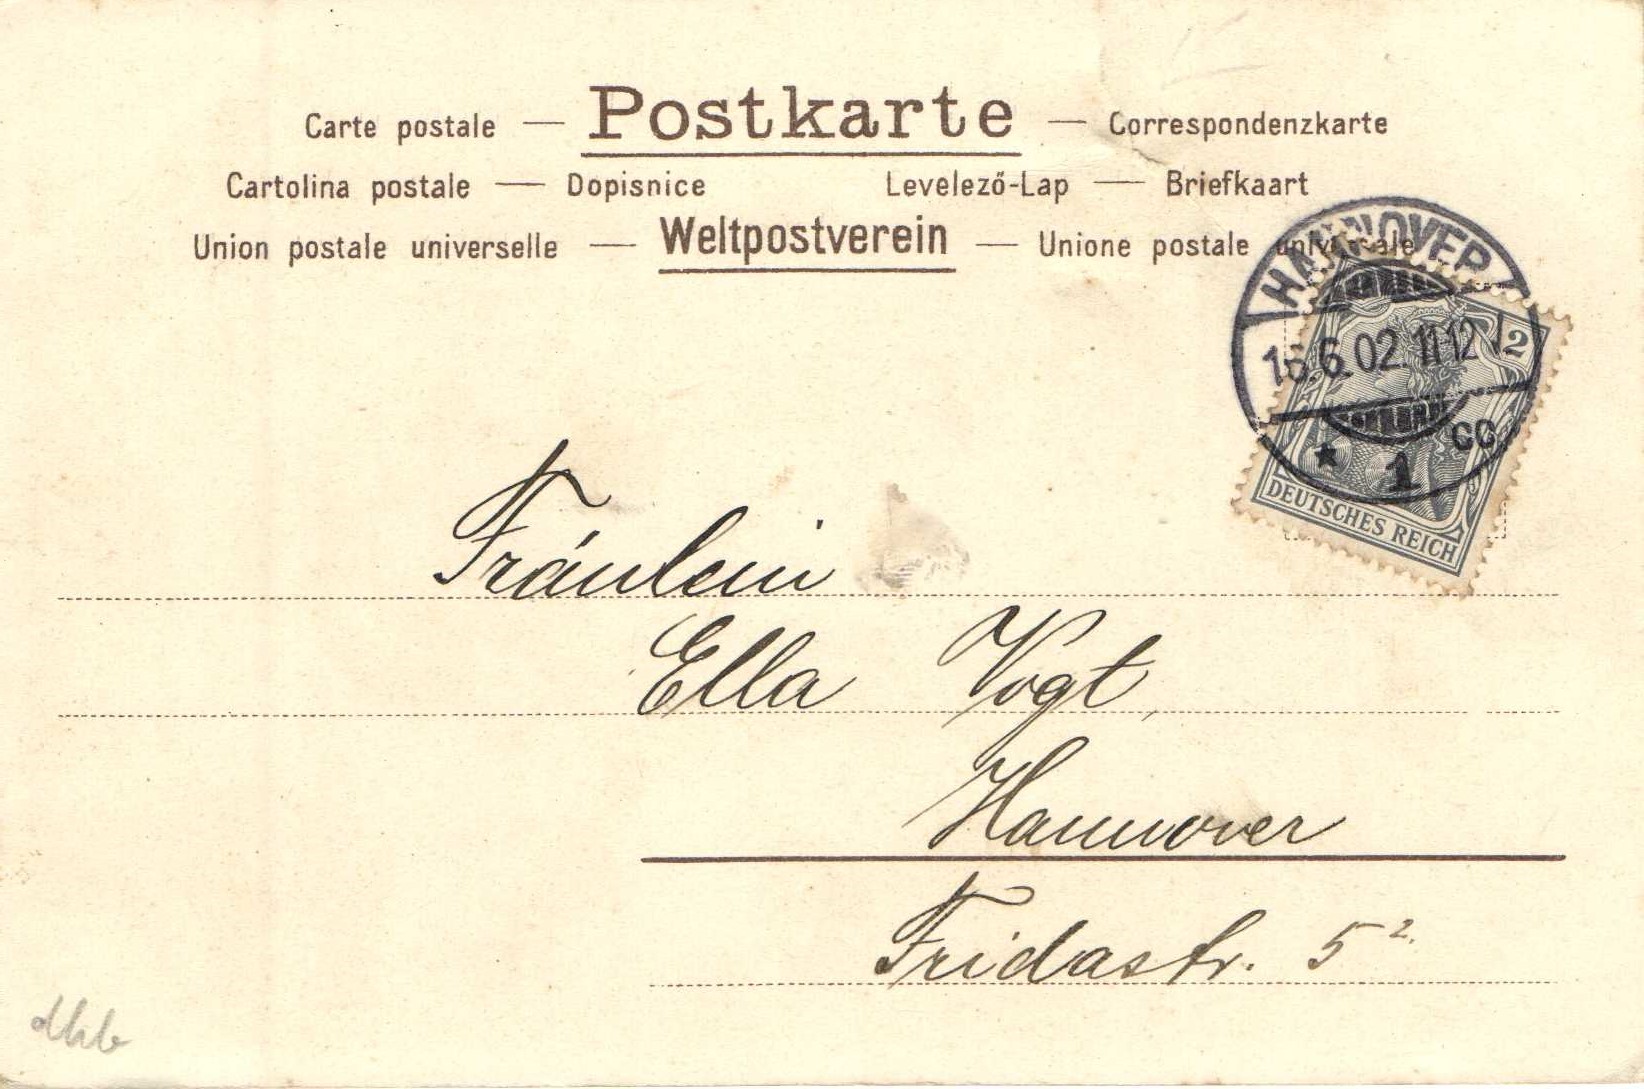 Carte postale — Postkarte — Correspondenzkarte
Cartolina postale — Dopisnice Levelező-Lap — Briefkaart
Union postale universelle — Weltpostverein — Unione postale universale
HANNOVER
6.02. 11-12
* 1 cc
2
DEUTSCHES REICH
Fräulein
Ella Vogt,
Hannover
Fridastr. 5².